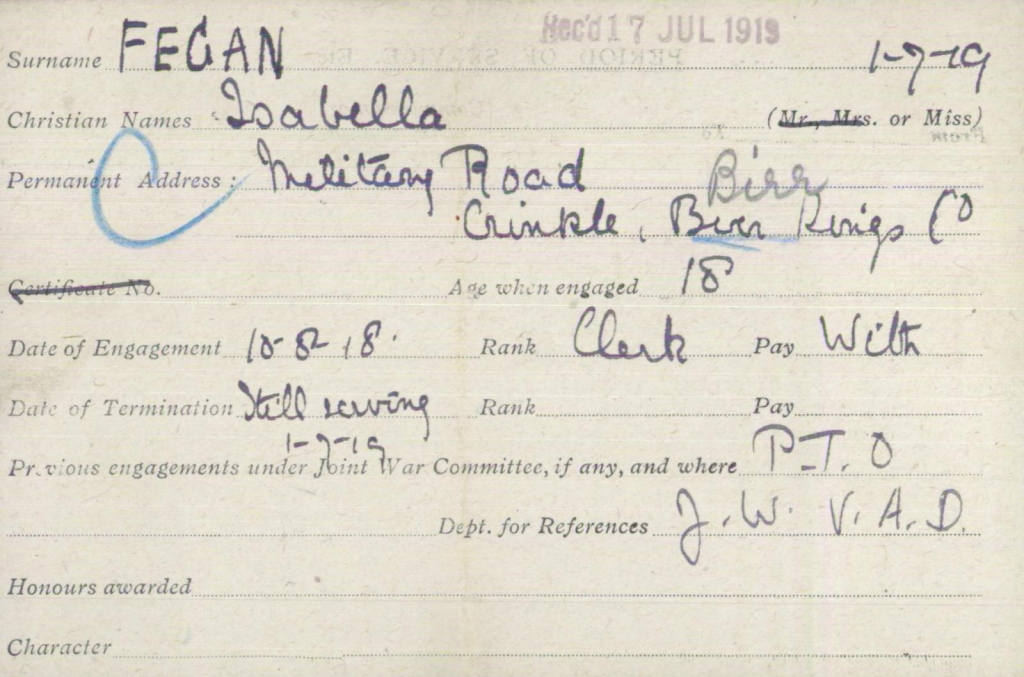 Rec'd 17 JUL 1919
PERIOD OF SERVICE, Etc.
Surname FEGAN 1-7-19
Christian Names Isabella (Mr., Mrs. or Miss)
From To
Permanent Address: Military Road Birr
Crinkle, Birr Kings Co
Certificate No. Age when engaged 18
Date of Engagement 10-8-18. Rank Clerk Pay With
Date of Termination Still serving Rank Pay
1-7-19
Previous engagements under Joint War Committee, if any, and where P.T.O
Dept. for References J.W. V.A.D.
Honours awarded
Character